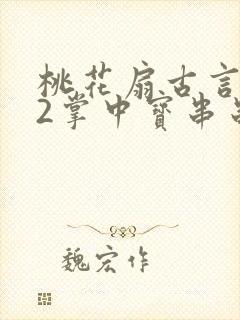 桃花扇古言
2掌中寳串
魏宏作